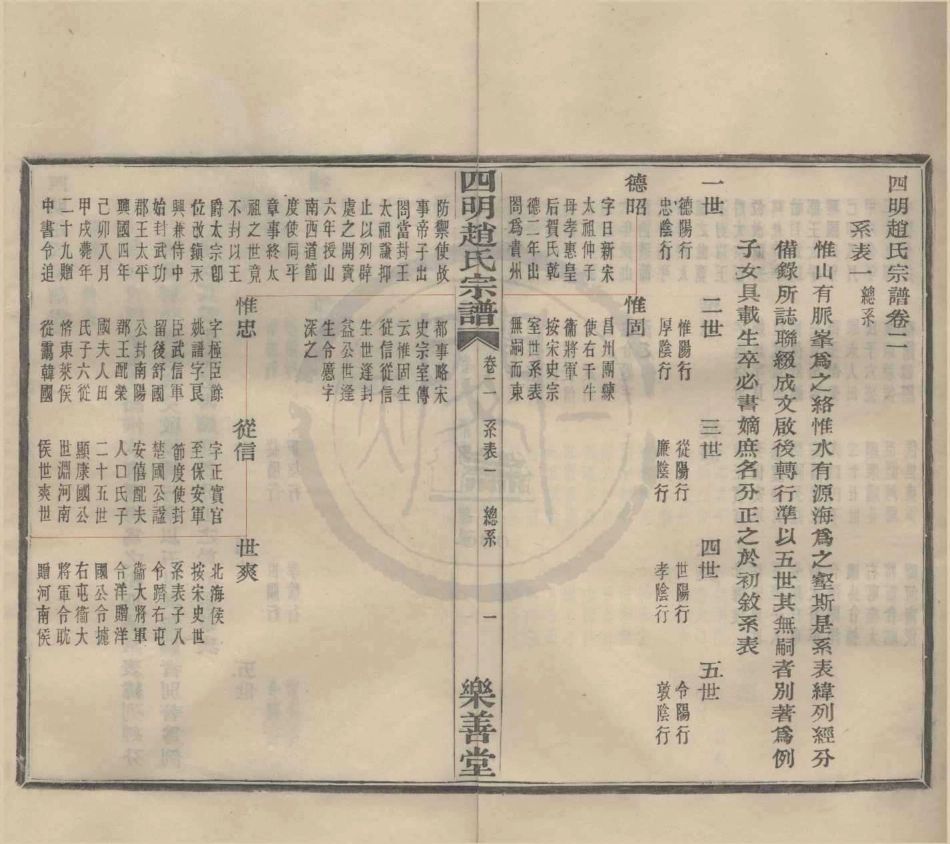 四明趙氏宗譜卷二
系表一總系
惟山有脈峯爲之絡惟水有源海爲之壑斯是系表緯列經分
備錄所誌聯綴成文啟後轉行準以五世其無嗣者別著爲例
子女具載生卒必書嫡庶名分正之於初敘系表
一世
二世
三世
四世
五世
德陽行
惟陽行
從陽行
世陽行
令陽行
忠陰行
厚陰行
廉陰行
孝陰行
敦陰行
德昭
惟固
字日新宋
昌州團練
太祖仲子
使右千牛
母孝惠皇
衞將軍
后賀氏乾
按宋史宗
德二年出
室世系表
閤爲貴州
無嗣而東
四明趙氏宗譜
卷二
系表一
總系
一
樂善堂
防禦使故
都事略宋
事帝子出
史宗室傳
閤當封王
云惟固生
太祖謙抑
從信從信
止以列辟
生世逢封
處之開寶
益公世逢
六年授山
生令懬字
南西道節
深之
度使同平
章事終太
祖之世竟
不封以王
惟忠
從信
世爽
爵太宗卽
字梃臣餘
字正實官
北海侯
位改鎭永
姚譜字民
至保安軍
按宋史世
興兼侍中
臣武信軍
節度使封
系表子八
始封武功
留後舒國
楚國公諡
令躋右屯
郡王太平
公封南陽
安僖配夫
衞大將軍
興國四年
郡王配滎
人口氏子
合洋贈洋
己卯八月
國夫人田
二十五世
國公合摭
甲戌薨年
氏子六從
顯康國公
右屯衞大
二十九贈
恪東萊侯
世淵河南
將軍合耽
中書令追
從靄韓國
侯世爽世
贈河南侯